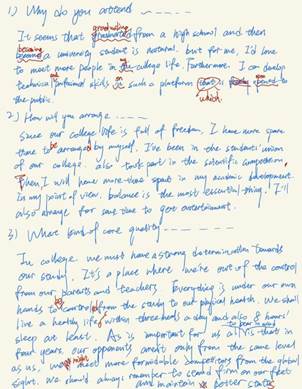 1) Why do you attend
It seems that graduating from a high school and then
becoming a university student is natural. but for me, I'd love
to meet more people in my college life. Furthermore. I can develop
technical and informal skills on such a platform that is opened to
which
the public.
2) How will you arrange
Since our college life is full of freedom, I have more spare
time to be arranged by myself. I've been in the students' union
of our college. also took part in the scientific competition.
Then, I will have more time spent in my academic development.
In my point of view, balance is the most essential thing. I'll
also arrange for some time to get entertainment.
3) What kind of core quality
In college we must have a strong determination towards
our study. It's a place where we're out of the control
from our parents and teachers. Everything is under our own
hands to be controlled from the study to our physical health. We shall
live a healthy life within three meals a day and also 8 hours'
sleep at least. As is important for us all is that in to bear in mind
four years. our opponents aren't only from the same level
as us, we might meet more formidable competitors from the global
sight. We should always remember to stand firm on our feet
and maintain better status